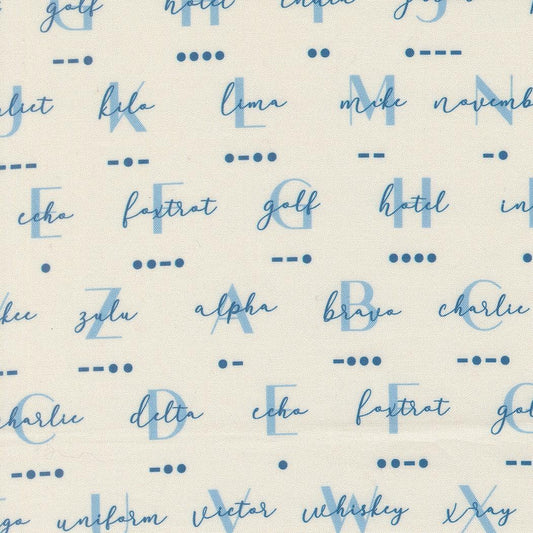 G golf H hotel I india J
--. .... .. .---
J liet K kilo L lima M mike N novemb
--- -.- .-.. -- -.
E echo F foxtrot G golf H hotel in
. ..-. --. .... .
kee Z zulu A alpha B bravo C charlie
-- --.. .- -... -.-.
C charlie D delta E echo F foxtrot G gol
-.-. -.. . ..-. --
go U uniform V victor W whiskey X x-ray